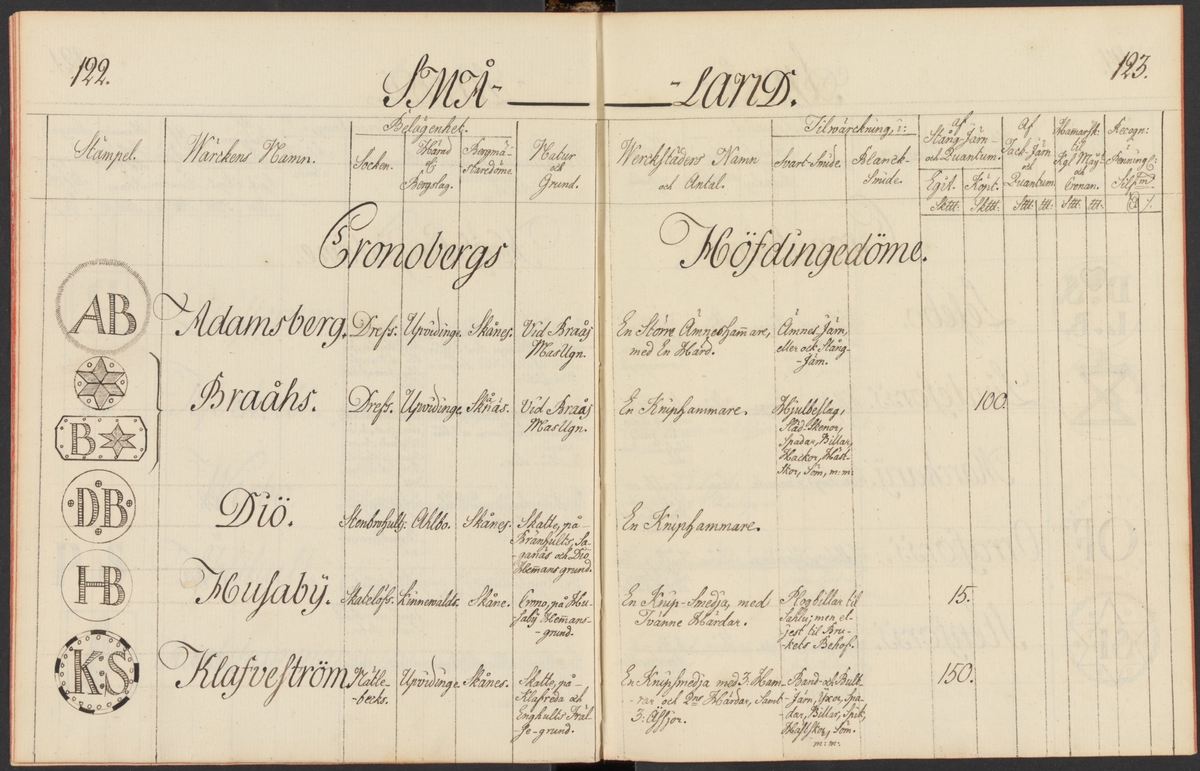 122.
SMÅ-
-LAND.
123.
Stämpel.
Wärckens Namn.
Belägenhet.
Socken.
Härad
och
Bergslag.
Bergmä-
staredöme.
Natur
och
Grund.
Werckstäders Namn
och Antal.
Tilwärckning, i:
Svart-Smide.
Blanck-
Smide.
af
Stång-Järn
och Quantum.
Egit.
Köpt.
Af
Tack-Järn
och
Quantum.
Hamarsk:
til
Kgl. Maÿ:
och
Cronan.
Recogn:
Cronobergs
Höfdingedöme.
AB
Adamsberg.
Drefs.
Upvidinge.
Skånes.
Vid Braås
MasUgn.
En Större Ämneshammare,
med En Härd.
Ämnes Järn,
eller ock Stång-
-Järn.
B
Braåhs.
Drefs.
Upvidinge.
Skånes.
Vid Braås
MasUgn.
En Kniphammare.
Hjulbeslag,
Släd-Skenor,
Spadar, Billar,
Hackor, Häst-
Skor, Söm, m:m:
100.
DB
Diö.
Stenbrohults:
Allbo.
Skånes.
Skatte, på
Bränhults, Sa-
-ganäs och Diö
Hemans grund.
En Kniphammare.
HB
Husabÿ.
Skatelöfs.
Kinnevalds.
Skåne.
Crono, på Hu-
sabÿ Hemans-
-grund.
En Knip-Smedja, med
Tvänne Härdar.
Plogbillar til
Sahlu; men el-
jest til Bru-
-kets Behof.
15.
K:S
Klafveström.
Nötte-
-becks.
Upvidinge.
Skånes.
Skatte, på
Klafreda och
Enghults Fräl-
se-grund.
En Knipsmedja med 3: Ham-
-rar och 2ne Härdar, Samt
3: Ässjor.
Band- och Bult-
-Järn, Yxor, Spa-
dar, Billar, Spik,
Hästskor, Söm.
m:m:
150.